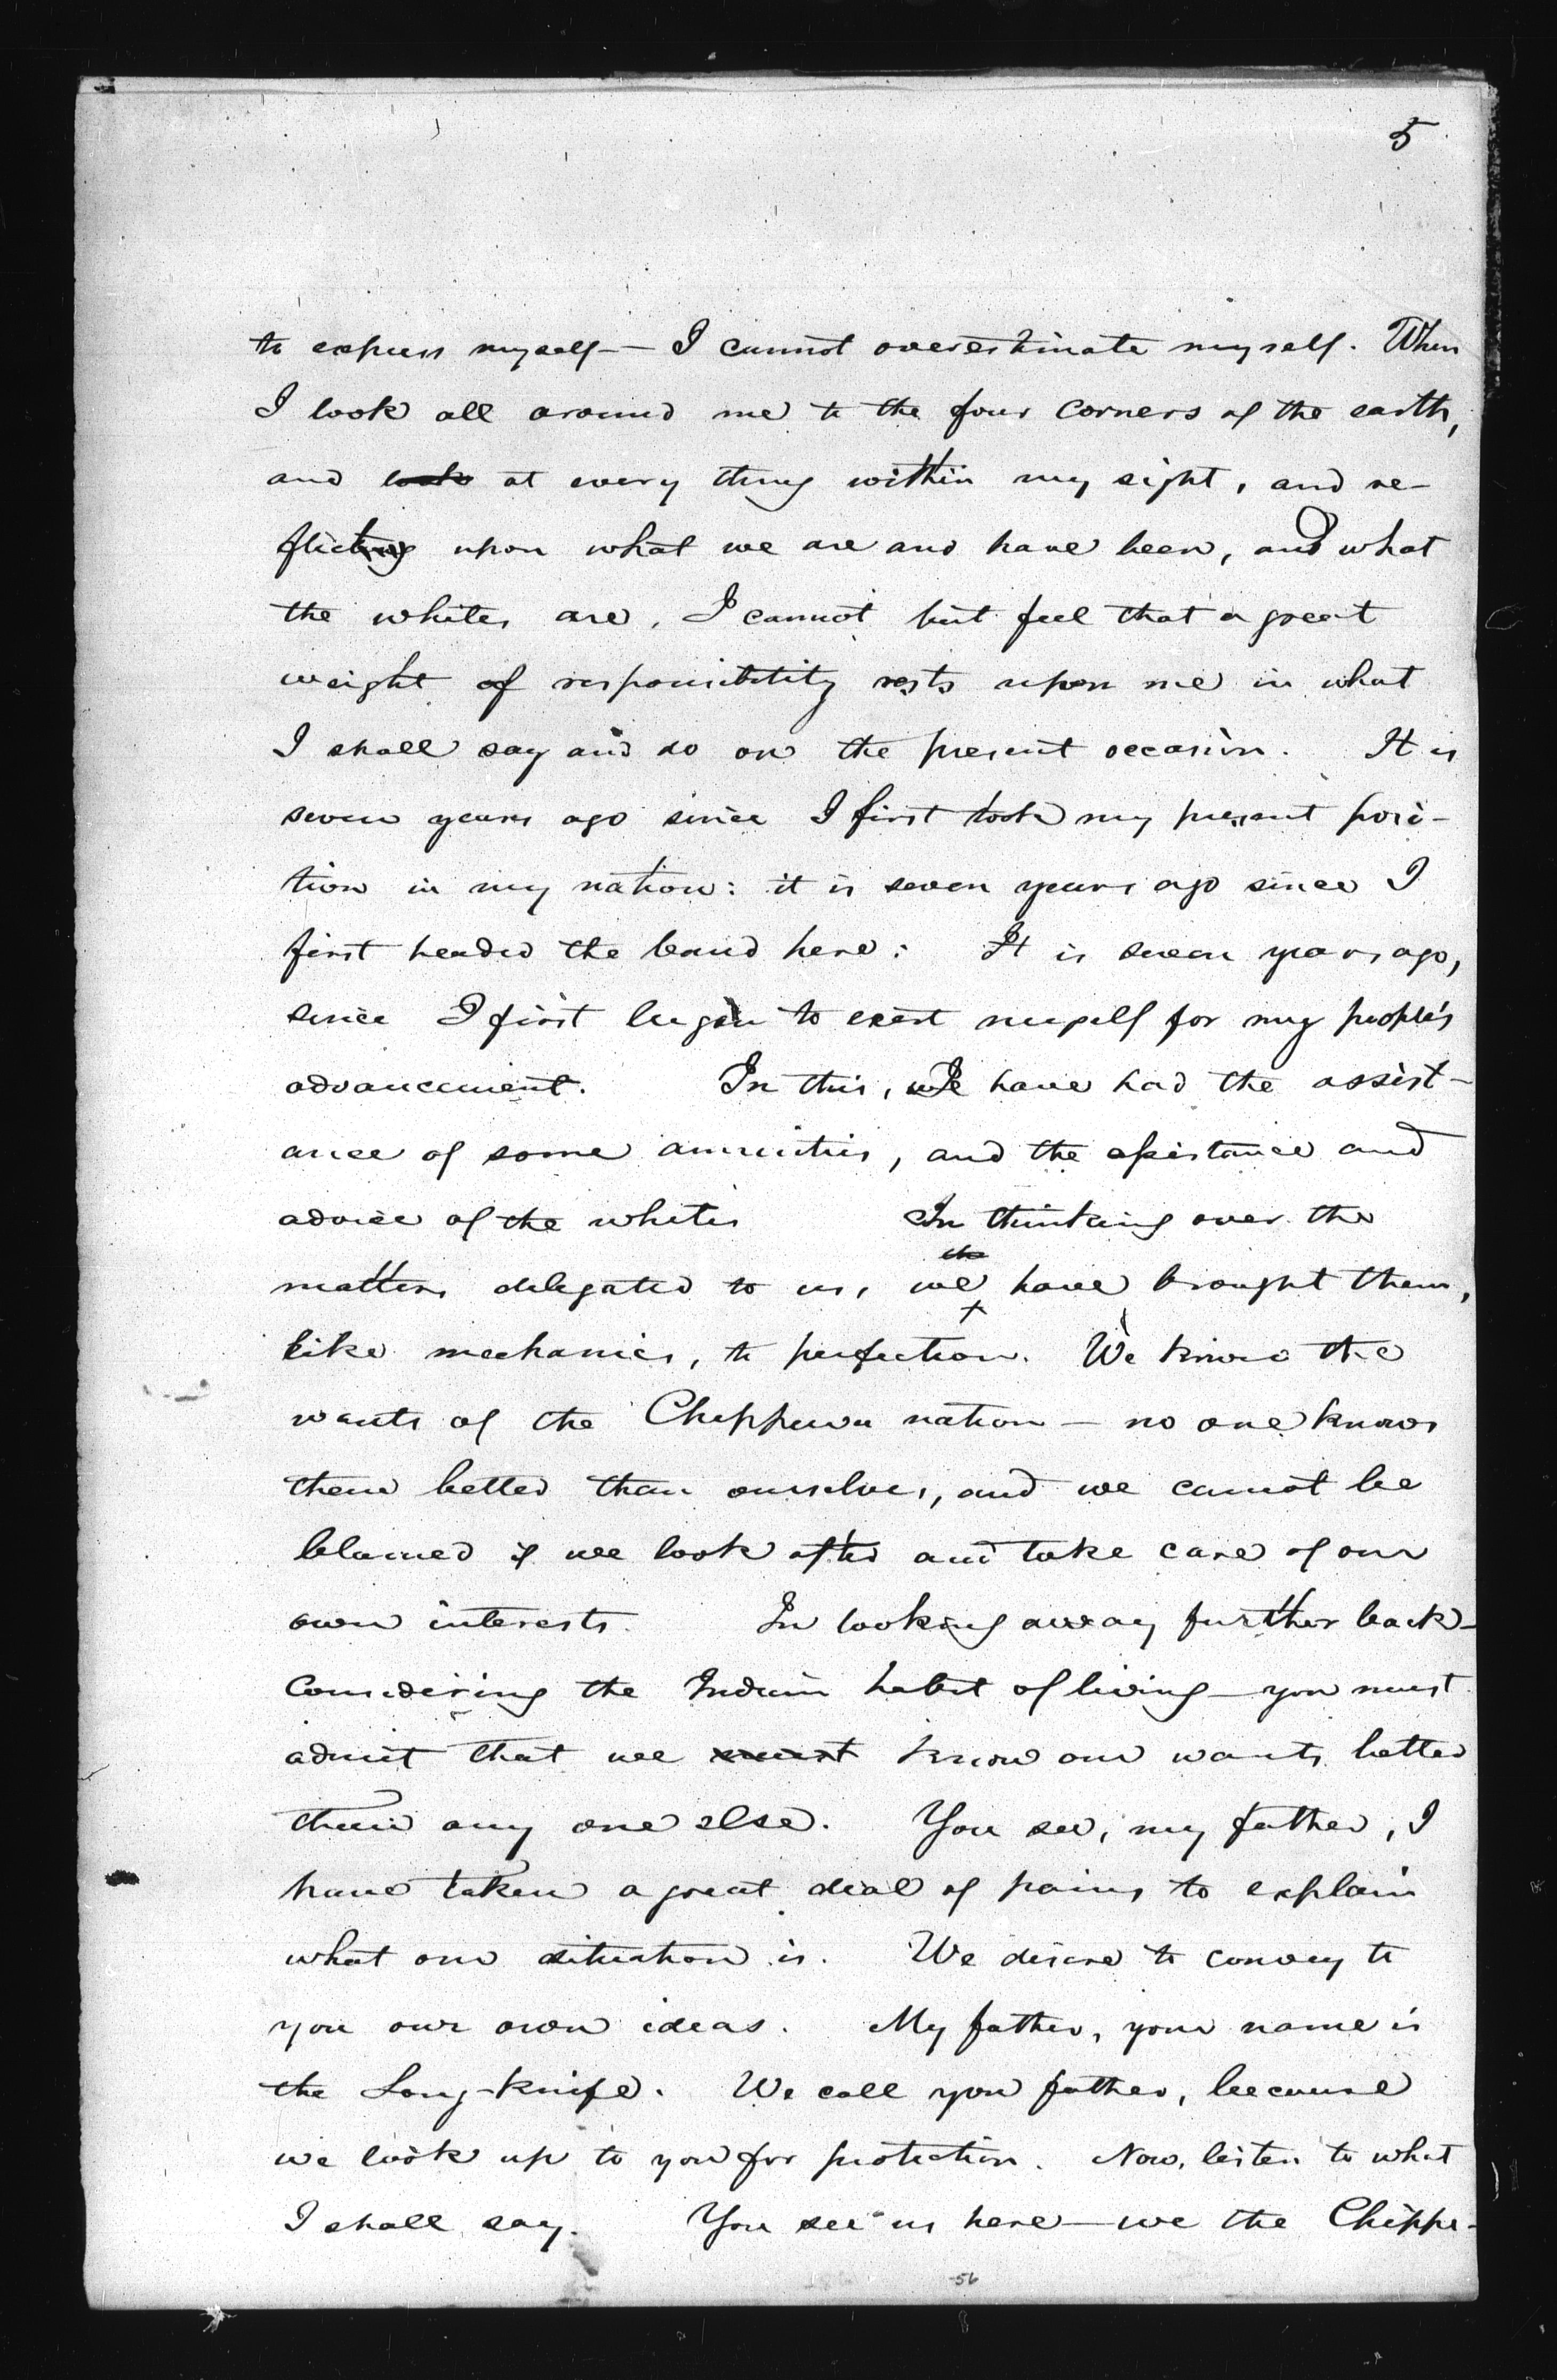 5
to express myself — I cannot overestimate myself. When
I look all around me to the four corners of the earth,
and look at every thing within my sight, and re-
flecting upon what we are and have been, and what
the whites are, I cannot but feel that a great
weight of responsibility rests upon me in what
I shall say and do on the present occasion. It is
seven years ago since I first took my present posi-
tion in my nation: it is seven years ago since I
first headed the band here: It is seven years ago,
since I first began to exert myself for my people's
advancement. In this, we have had the assist-
ance of some annuities, and the assistance and
advice of the whites In thinking over the
matters delegated to us, we have brought them,
like mechanics, to perfection. We know the
wants of the Chippewa nation — no one knows
them better than ourselves, and we cannot be
blamed if we look after and take care of our
own interests. In looking away further back —
Considering the Indian habit of living — you must
admit that we must know our wants better
than any one else. You see, my father, I
have taken a great deal of pains to explain
what our situation is. We desire to convey to
you our own ideas. My father, your name is
the Long-knife. We call you father, because
we look up to you for protection. Now, listen to what
I shall say. You see us here — we the Chippe-
56